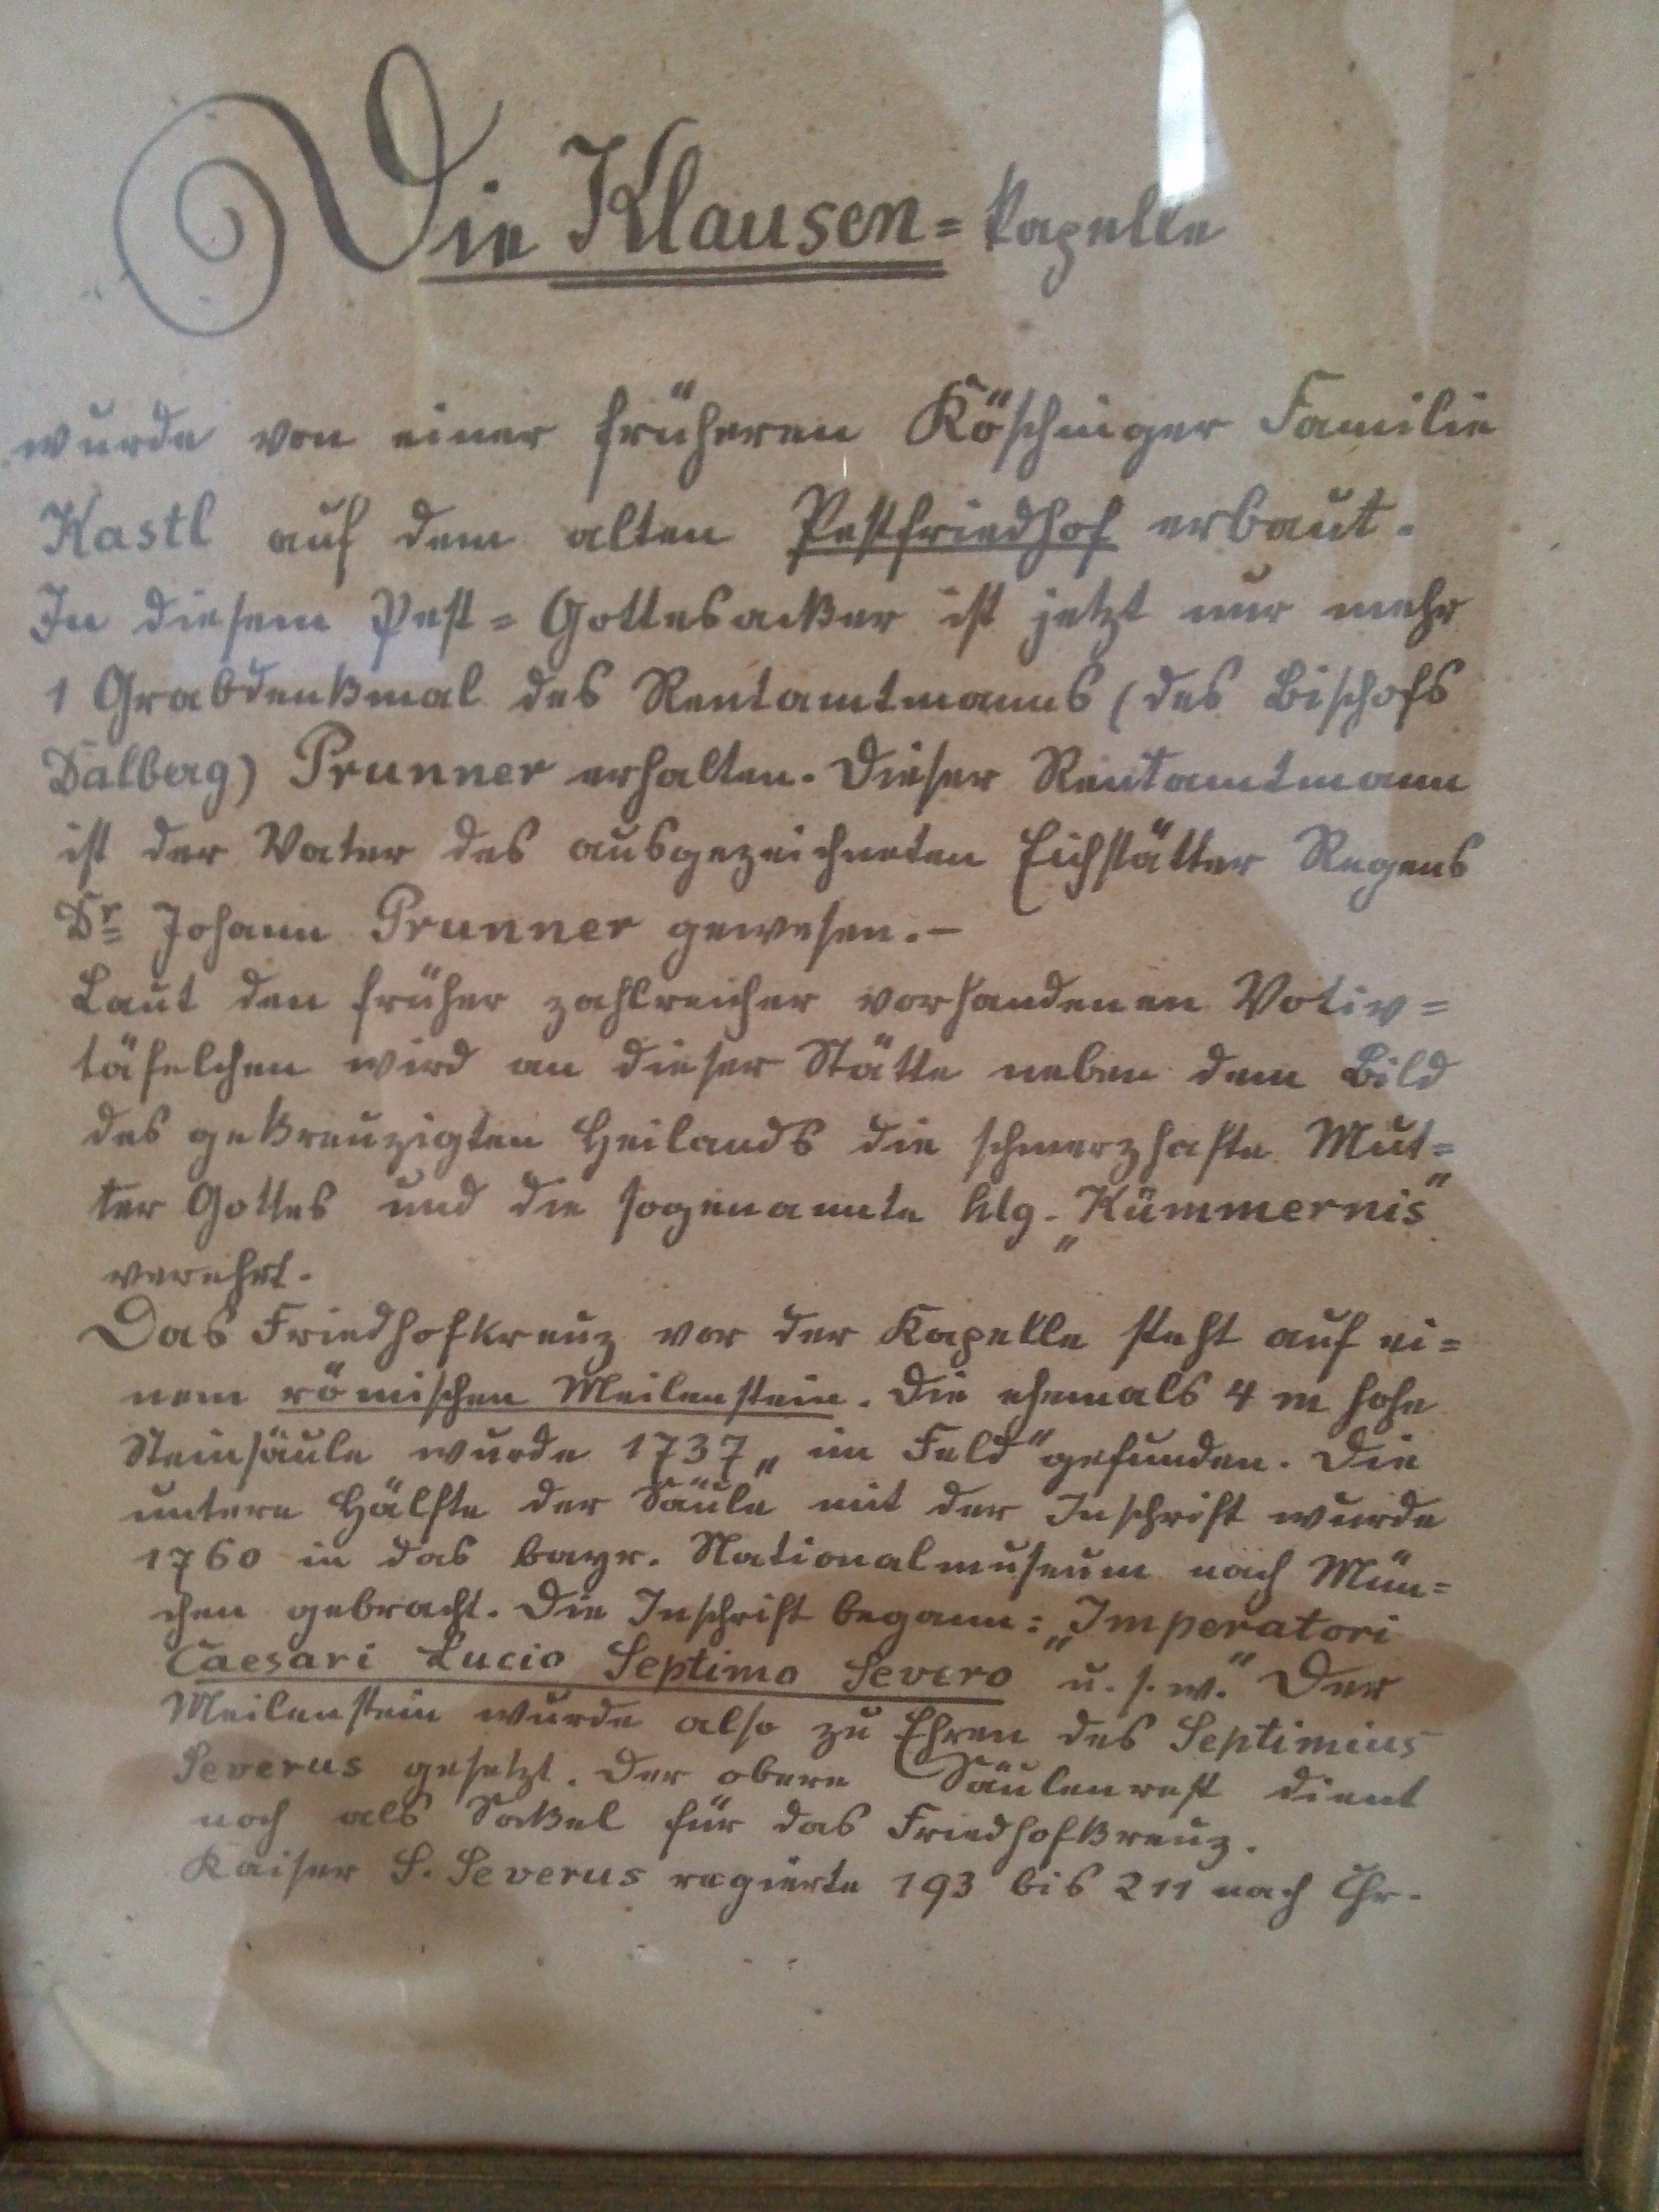 Die Klausen= kapelle
wurde von einer früheren Köschinger Familie
Kastl auf dem alten Pestfriedhof erbaut.
In diesem Pest = Gottesacker ist jetzt nur mehr
1 Grabdenkmal des Rentamtmanns (des Bischofs
Dalberg) Prunner erhalten. Dieser Rentamtmann
ist der Vater des ausgezeichneten Eichstätter Regens
Dr Johann Prunner gewesen.-
Laut den früher zahlreicher vorhandenen Votiv=
täfelchen wird an dieser Stätte neben dem Bild
des gekreuzigten Heilands die schmerzhafte Mut=
ter Gottes und die sogenannte hlg. „Kümmernis"
verehrt.
Das Friedhofkreuz vor der Kapelle steht auf ei=
nem römischen Meilenstein. Die ehemals 4 m hohe
Steinsäule wurde 1737 „im Feld" gefunden. Die
untere Hälfte der Säule mit der Inschrift wurde
1760 in das bayr. Nationalmuseum nach Mün=
chen gebracht. Die Inschrift begann: „Imperatori
Caesari Lucio Septimo Severo u.s.w." Der
Meilenstein wurde also zu Ehren des Septimius
Severus gesetzt. Der obere Säulenrest dient
noch als Sockel für das Friedhofkreuz.
Kaiser S. Severus regierte 193 bis 211 nach Chr.